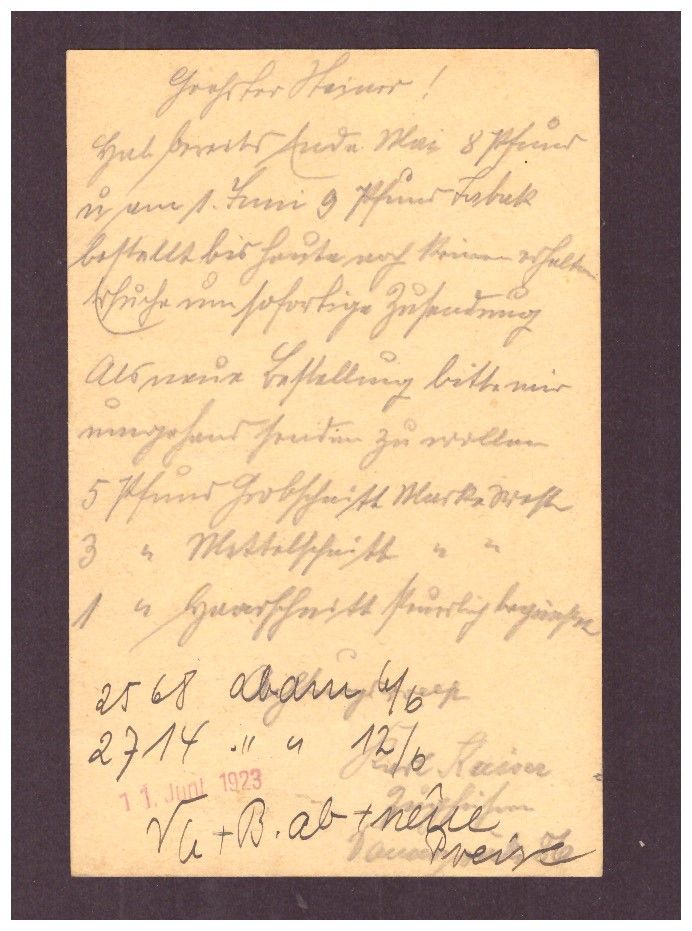 Geehrter Steiner!
Hab bereits Ende Mai 8 Pfund
u am 1. Juni 9 Pfund Tabak
bestellt bis heute noch keinen erhalten
ersuche um sofortige Zusendung
Als neue Bestellung bitte mir
umgehend senden zu wollen
5 Pfund Grobschnitt Marke
3 " Mittelschnitt " "
1 " Haarschnitt steuerlich begünstigt
2568 ab am 4/6
2714 " " 12/6
Karl Kaiser
11. Juni 1923
+ B. ab + neue
Preise